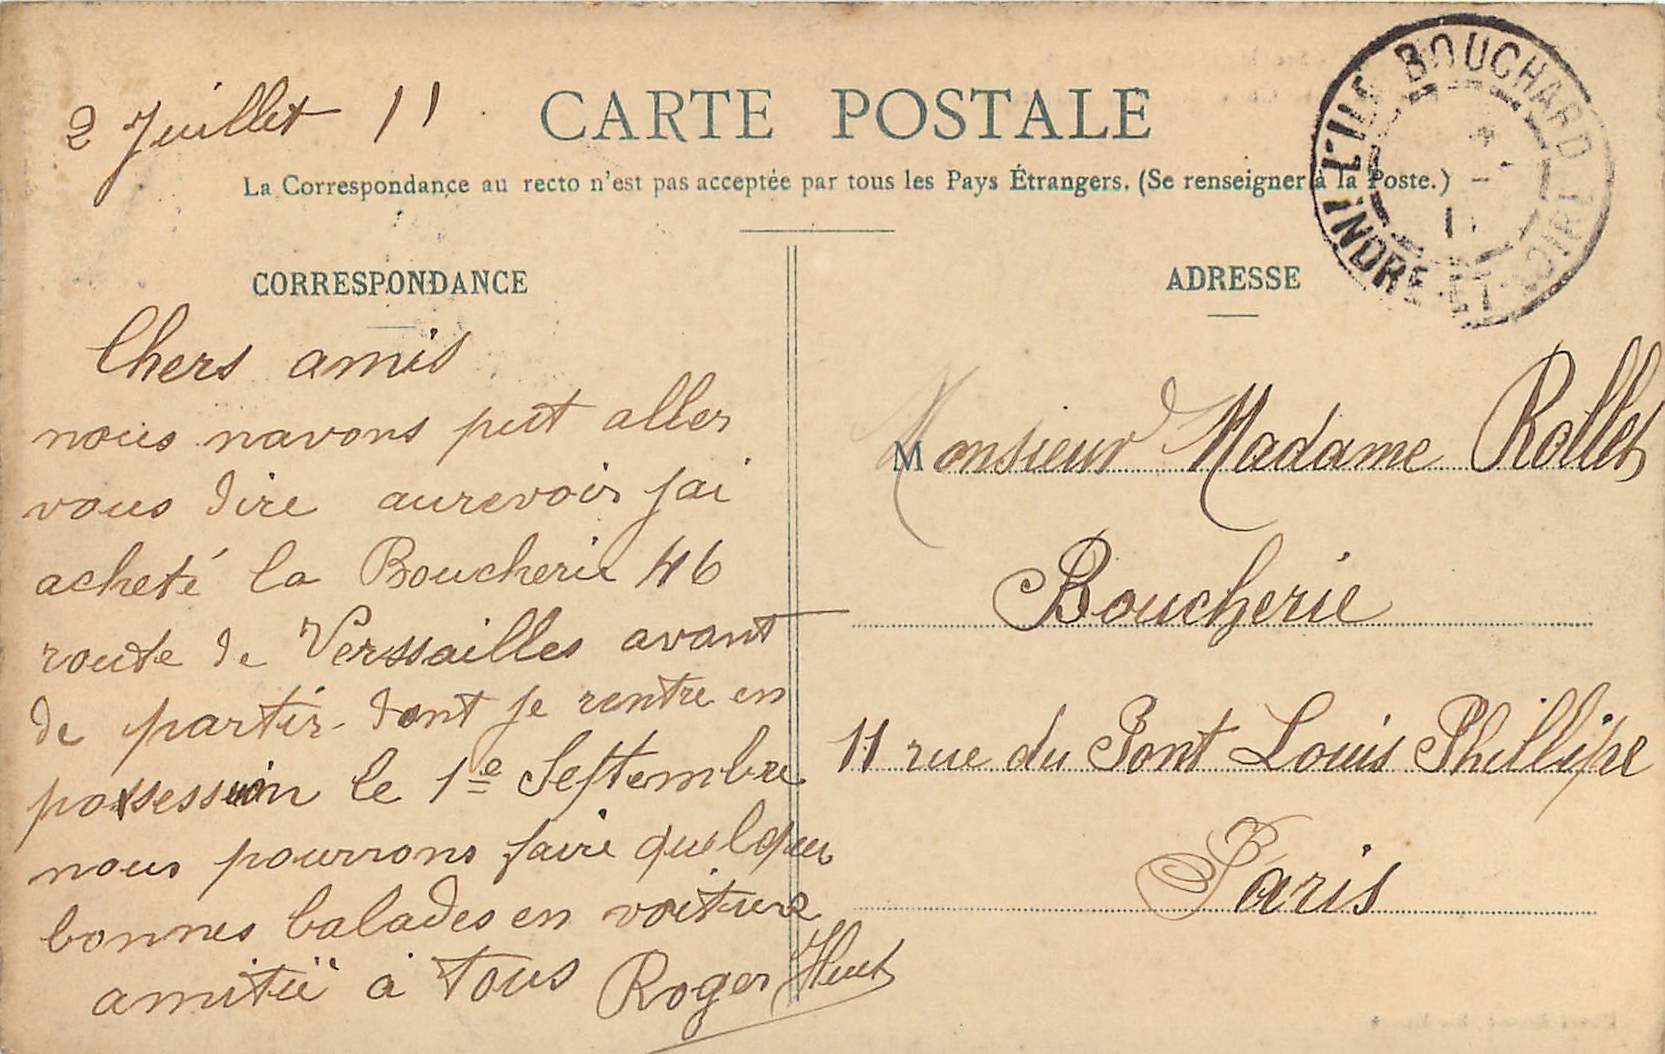 2 Juillet 11
CARTE POSTALE
La Correspondance au recto n'est pas acceptée par tous les Pays Étrangers. (Se renseigner à la Poste.)
L'ILE BOUCHARD
INDRE-ET-LOIRE
CORRESPONDANCE
Chers amis
nous navons put aller
vous dire aurevoir jai
acheté la Boucherie 46
route de Verssailles avant
de partir dont je rentre en
possession le 1e Septembre
nous pourrons faire quelques
bonnes balades en voiture
amitiè à tous Roger Huet
ADRESSE
Monsieur Madame Rollet
Boucherie
11 rue du Pont Louis Phillipe
Paris